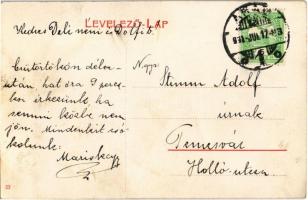 LEVELEZŐ-LAP
Kedves Deli néni és Dolfi b.
Csütörtökön délu-
után, hat óra 9 perc-
ben érkezünk, ha
semmi közbe nem
jön. Mindenkit csó
kolunk:
Mariskayy
Ngs.
Stumm Adolf
úrnak
Temesvár
Holló-utca